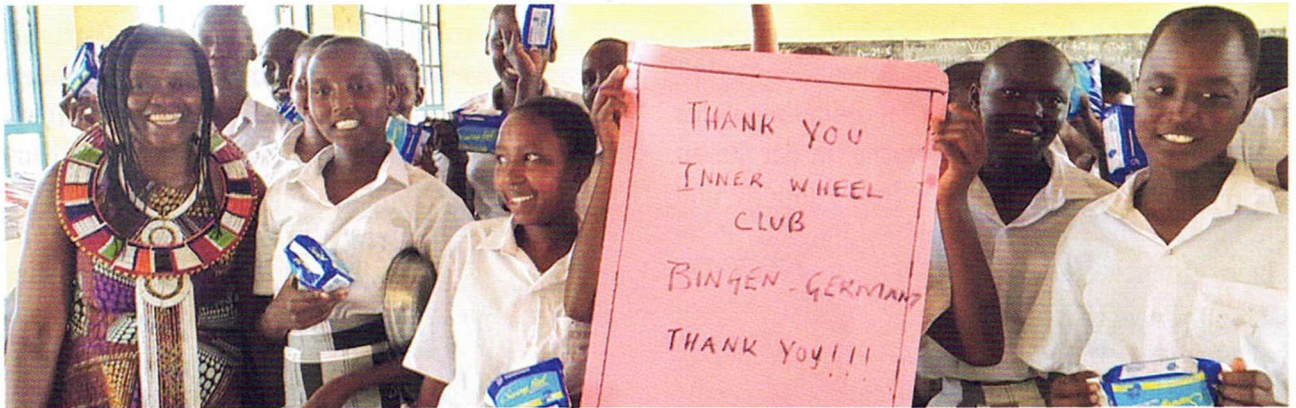 THANK YOU
INNER WHEEL
CLUB
BINGEN - GERMANY
THANK YOU!!!